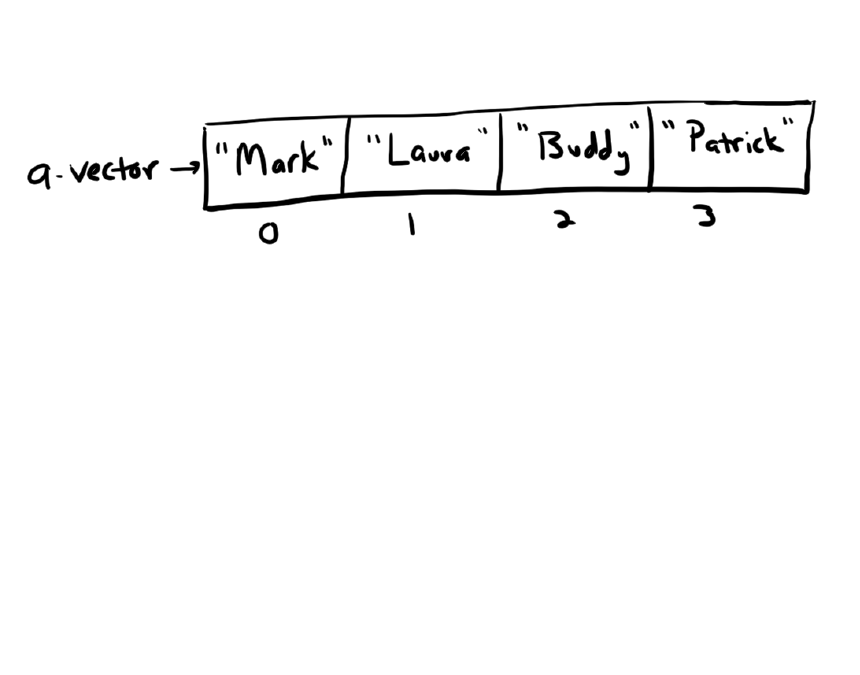 a-vector → "Mark" "Laura" "Buddy" "Patrick"
0 1 2 3